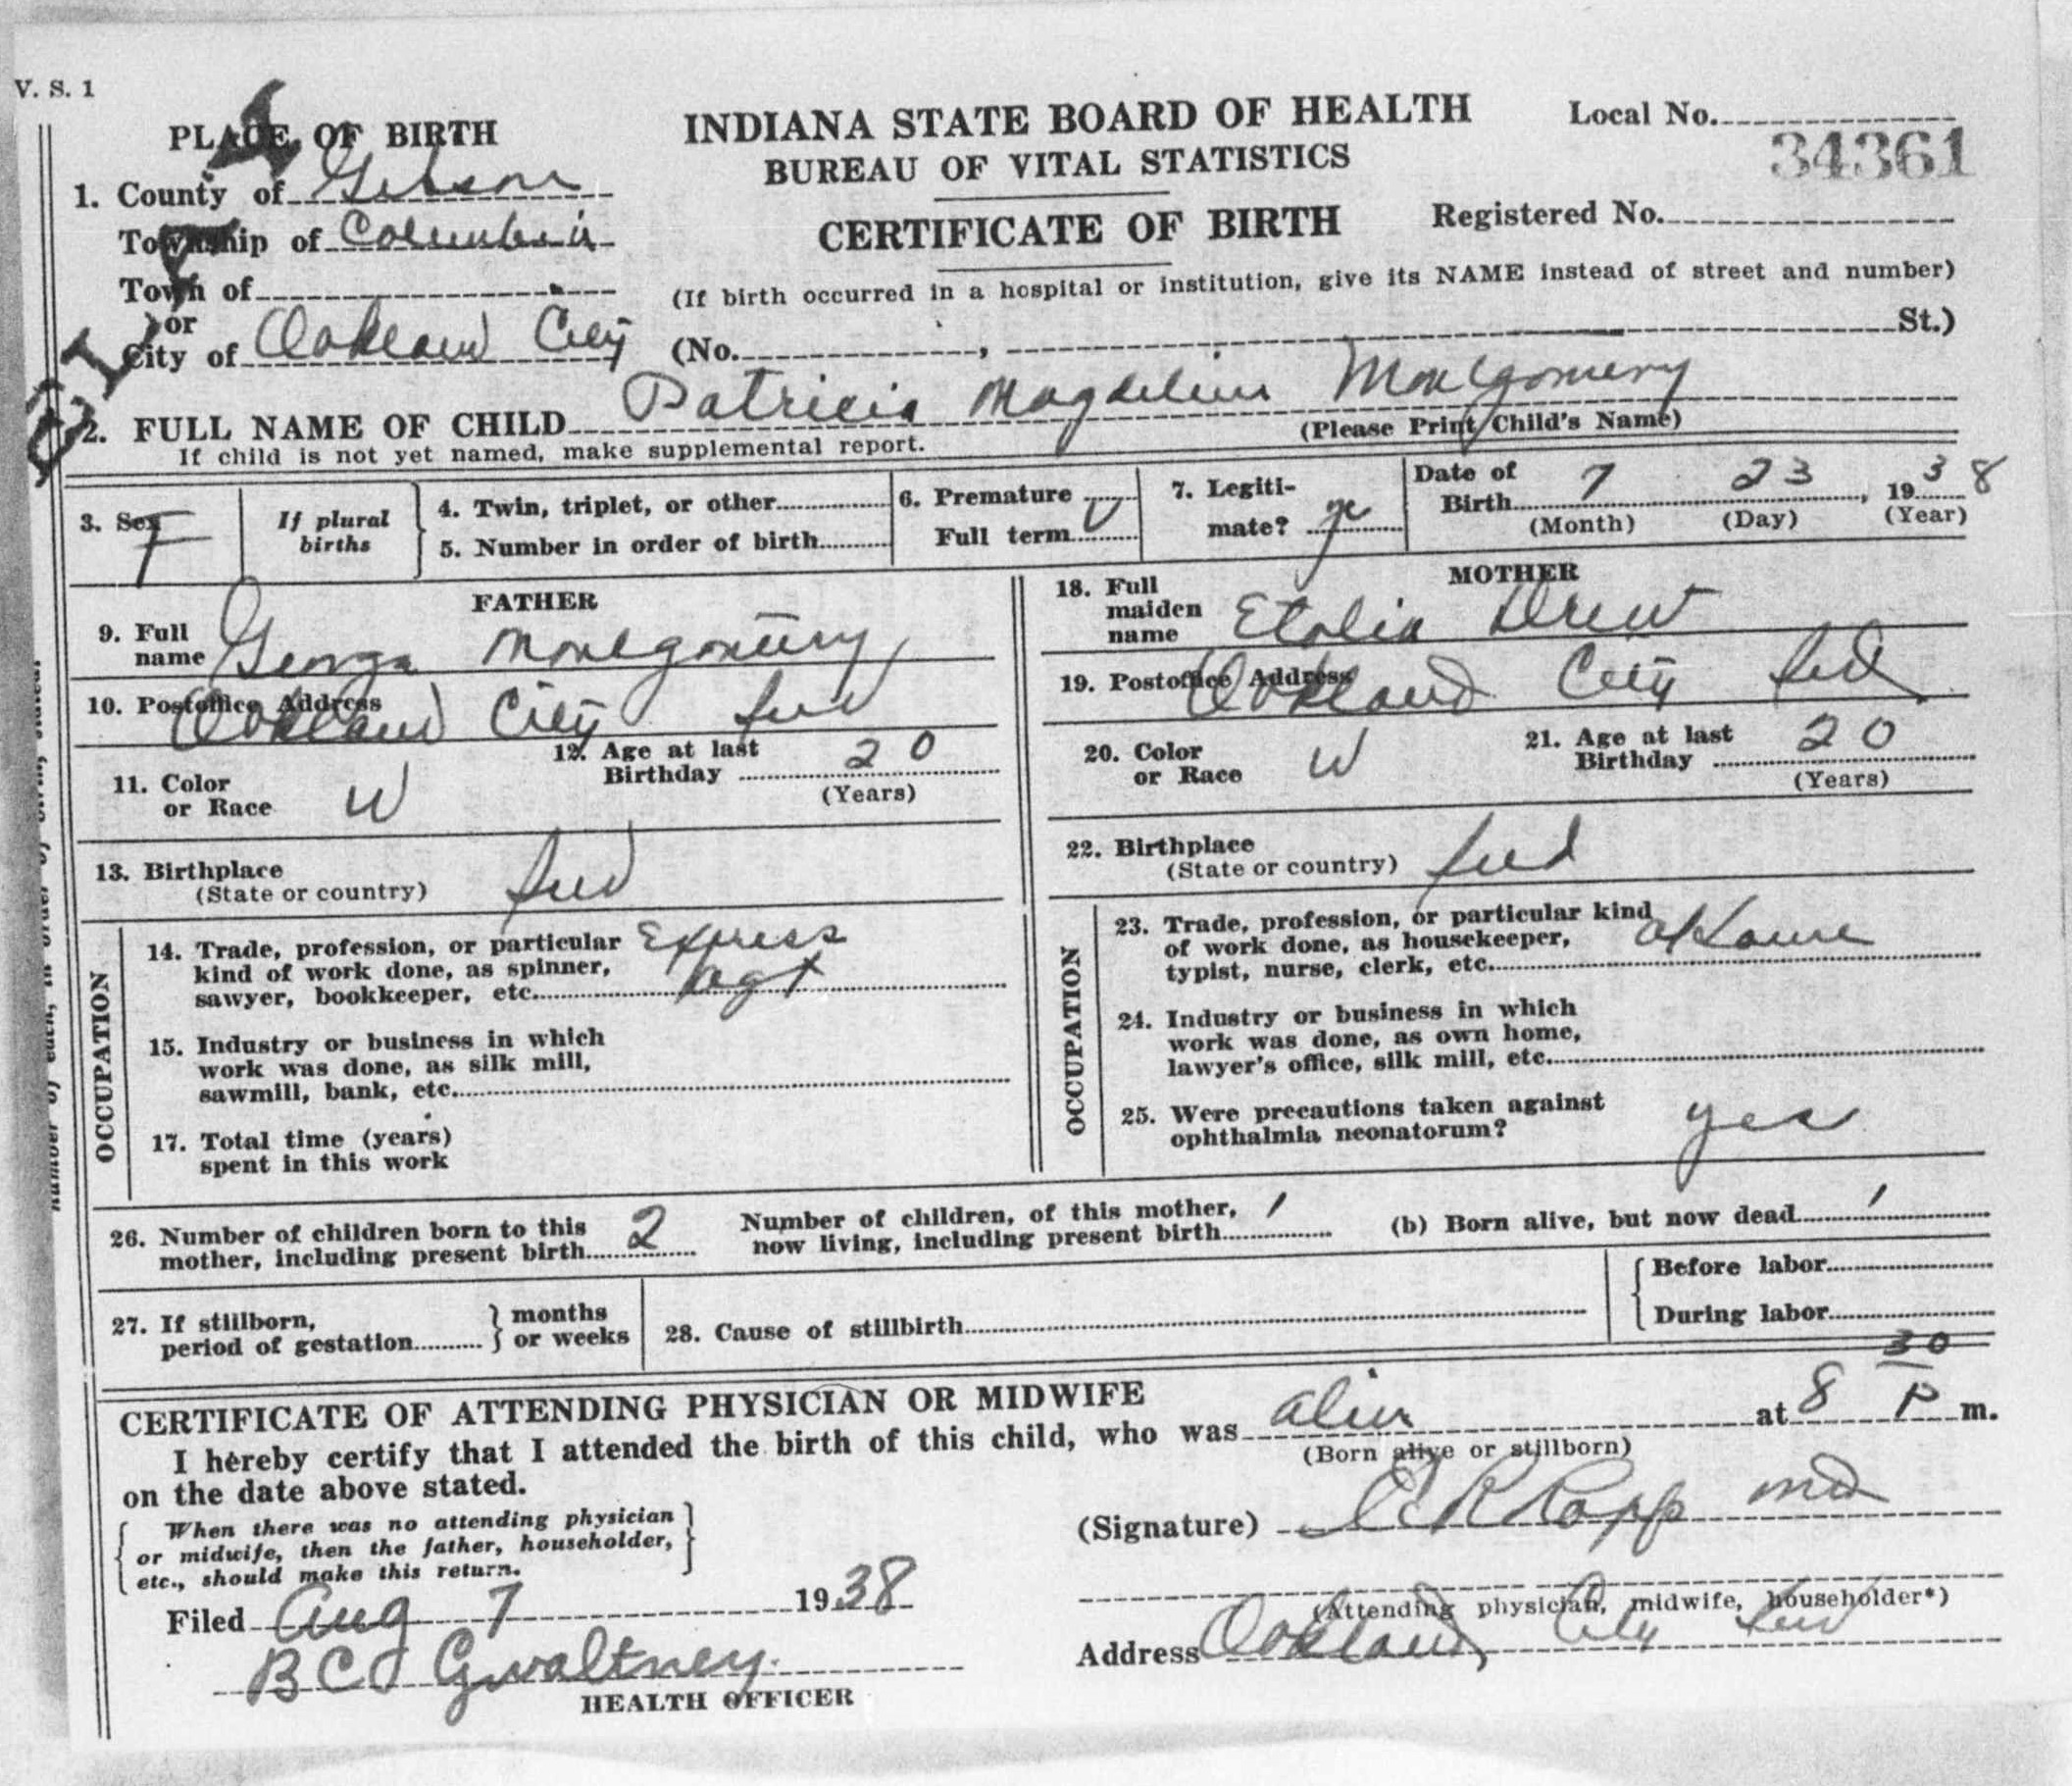 V. S. 1
PLACE OF BIRTH
INDIANA STATE BOARD OF HEALTH
Local No.
34361
BUREAU OF VITAL STATISTICS
1. County of Gibson
Township of Columbia
CERTIFICATE OF BIRTH
Registered No.
Town of
or
(If birth occurred in a hospital or institution, give its NAME instead of street and number)
City of Oakland City
(No. , St.)
2. FULL NAME OF CHILD Patricia Magdeline Montgomery
(Please Print Child's Name)
If child is not yet named, make supplemental report.
3. Sex F
If plural births
4. Twin, triplet, or other
5. Number in order of birth
6. Premature
Full term
7. Legiti-
mate?
Date of
Birth 7 23, 1938
(Month) (Day) (Year)
FATHER
9. Full
name George Montgomery
10. Postoffice Address
Oakland City Ind
11. Color
or Race W
12. Age at last
Birthday 20
(Years)
13. Birthplace
(State or country) Ind
OCCUPATION
14. Trade, profession, or particular Express
kind of work done, as spinner,
sawyer, bookkeeper, etc. Agt
15. Industry or business in which
work was done, as silk mill,
sawmill, bank, etc.
17. Total time (years)
spent in this work
MOTHER
18. Full
maiden
name Etolia Drew
19. Postoffice Address
Oakland City Ind
20. Color
or Race W
21. Age at last
Birthday 20
(Years)
22. Birthplace
(State or country) Ind
OCCUPATION
23. Trade, profession, or particular kind
of work done, as housekeeper, at home
typist, nurse, clerk, etc.
24. Industry or business in which
work was done, as own home,
lawyer's office, silk mill, etc.
25. Were precautions taken against
ophthalmia neonatorum? yes
26. Number of children born to this
mother, including present birth 2
Number of children, of this mother,
now living, including present birth 1
(b) Born alive, but now dead 1
27. If stillborn,
period of gestation
months
or weeks
28. Cause of stillbirth
Before labor
During labor
CERTIFICATE OF ATTENDING PHYSICIAN OR MIDWIFE
I hereby certify that I attended the birth of this child, who was alive at 8 30 P m.
(Born alive or stillborn)
on the date above stated.
When there was no attending physician
or midwife, then the father, householder,
etc., should make this return.
(Signature) Ropp md
(Attending physician, midwife, householder*)
Filed Aug 7 1938
Address Oakland City Ind
B C Gwaltney
HEALTH OFFICER